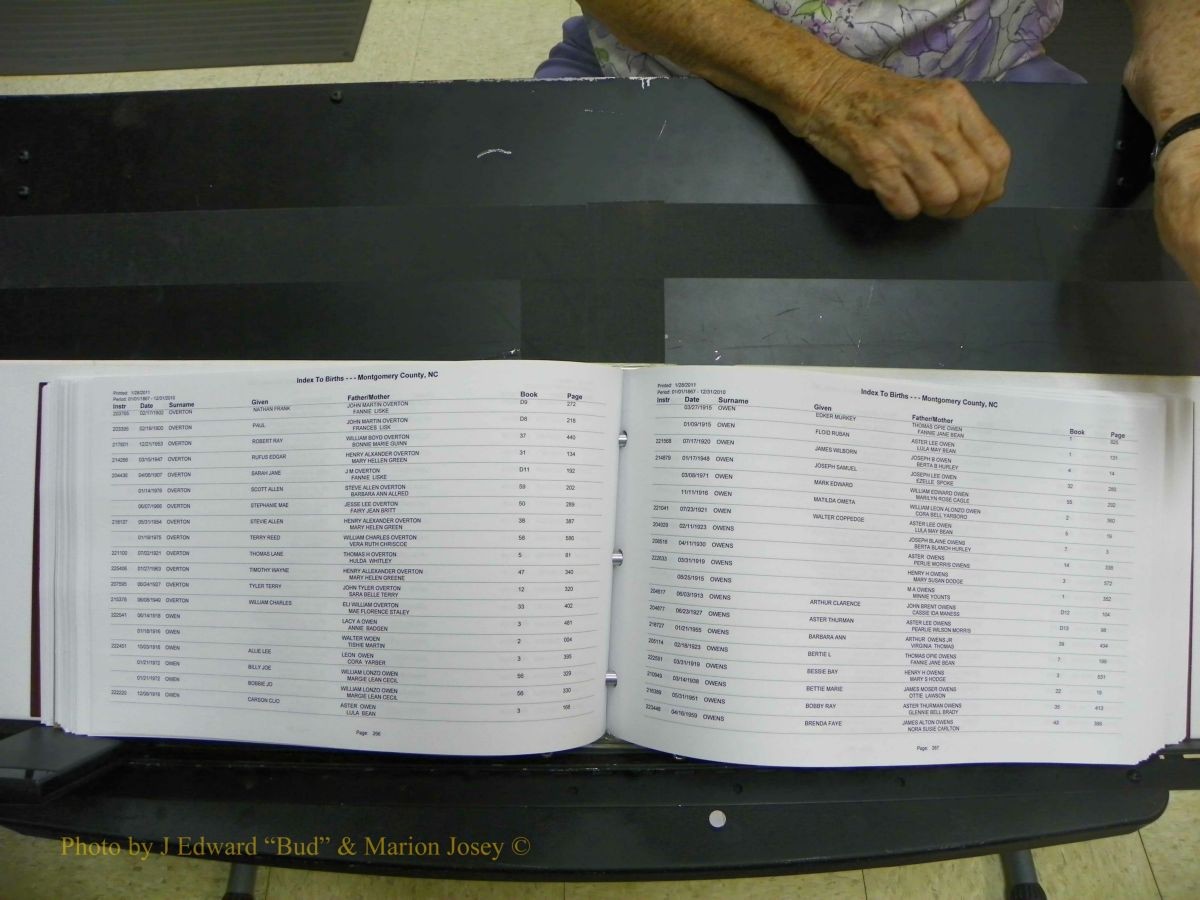 Index To Births - - - Montgomery County, NC
Printed: 1/28/2011
Period: 01/01/1867 - 12/31/2010
Instr Date Surname Given Father/Mother Book Page
203765 02/17/1902 OVERTON NATHAN FRANK JOHN MARTIN OVERTON D9 272
FANNIE LISKE
203395 02/18/1900 OVERTON PAUL JOHN MARTIN OVERTON D8 218
FRANCES LISK
217601 12/21/1953 OVERTON ROBERT RAY WILLIAM BOYD OVERTON 37 440
BONNIE MARIE GUINN
214266 03/15/1947 OVERTON RUFUS EDGAR HENRY ALXANDER OVERTON 31 134
MARY HELLEN GREEN
204436 04/06/1907 OVERTON SARAH JANE J M OVERTON D11 192
FANNIE LISKE
01/14/1978 OVERTON SCOTT ALLEN STEVE ALLEN OVERTON 59 202
BARBARA ANN ALLRED
06/07/1966 OVERTON STEPHANIE MAE JESSE LEE OVERTON 50 289
FAIRY JEAN BRITT
218137 05/31/1954 OVERTON STEVIE ALLEN HENRY ALEXANDER OVERTON 38 387
MARY HELEN GREEN
01/19/1975 OVERTON TERRY REED WILLIAM CHARLES OVERTON 56 580
VERA RUTH CHRISCOE
221100 07/02/1921 OVERTON THOMAS LANE THOMAS H OVERTON 5 81
HULDA WHITLEY
225406 01/27/1963 OVERTON TIMOTHY WAYNE HENRY ALLEXANDER OVERTON 47 340
MARY HELEN GREENE
207595 06/24/1927 OVERTON TYLER TERRY JOHN TYLER OVERTON 12 320
SARA BELLE TERRY
215376 06/08/1949 OVERTON WILLIAM CHARLES ELI WILLIAM OVERTON 33 402
MAE FLORENCE STALEY
222541 06/14/1918 OWEN LACY A OWEN 3 481
ANNIE BADGEN
01/18/1916 OWEN WALTER WOEN 2 004
TISHIE MARTIN
222451 10/03/1918 OWEN ALLIE LEE LEON OWEN 3 395
CORA YARBER
01/21/1972 OWEN BILLY JOE WILLIAM LONZO OWEN 56 329
MARGIE LEAN CECIL
01/21/1972 OWEN BOBBIE JO WILLIAM LONZO OWEN 56 330
MARGIE LEAN CECIL
222220 12/08/1918 OWEN CARSON CLIO ASTER OWEN 3 168
LULA BEAN
Page: 266
Index To Births - - - Montgomery County, NC
Printed: 1/28/2011
Period: 01/01/1867 - 12/31/2010
Instr Date Surname Given Father/Mother Book Page
03/27/1915 OWEN EDKER MURKEY THOMAS OPIE OWEN 1 825
FANNIE JANE BEAN
01/09/1915 OWEN FLOID RUBAN ASTER LEE OWEN 1 131
LULA MAY BEAN
221568 07/17/1920 OWEN JAMES WILBORN JOSEPH B OWEN 4 14
BERTA B HURLEY
214879 01/17/1948 OWEN JOSEPH SAMUEL JOSEPH LEE OWEN 32
EZELLE SPOKE
03/08/1971 OWEN MARK EDWARD WILLIAM EDWARD OWEN 55 292
MARILYN ROSE CAGLE
11/11/1916 OWEN MATILDA OMETA WILLIAM LEON ALONZO OWEN 2
CORA BELL YARBORO
221041 07/23/1921 OWEN WALTER COPPEDGE ASTER LEE OWEN 5 19
LULA MAY BEAN
204929 02/11/1923 OWENS JOSEPH BLAINE OWENS 7 3
BERTA BLAMCH HURLEY
208518 04/11/1930 OWENS ASTER OWENS 14 338
PERLIE MORRIS OWENS
222633 03/31/1919 OWENS HENRY H OWENS 3 572
MARY SUSAN DODGE
08/25/1915 OWENS M A OWENS 1 352
MINNIE YOUNTS
204617 06/03/1913 OWENS ARTHUR CLARENCE JOHN BRENT OWENS D12 104
CASSIE IDA MANESS
204677 06/23/1927 OWENS ASTER THURMAN ASTER LEE OWENS D13 98
PEARLIE WILSON MORRIS
218727 01/21/1955 OWENS BARBARA ANN ARTHUR OWENS JR 39 434
VIRGINIA THOMAS
205114 02/18/1923 OWENS BERTIE L THOMAS OPIE OWENS 7 198
FANNIE JANE BEAN
222581 03/31/1919 OWENS BESSIE BAY HENRY H OWENS 3 531
MARY S HODGE
210949 03/14/1938 OWENS BETTIE MARIE JAMES MOSER OWENS 22 19
OTTIE LAWSON
216389 05/31/1951 OWENS BOBBY RAY ASTER THURMAN OWENS 35 413
GLENNIE BELL BRADY
223448 04/16/1959 OWENS BRENDA FAYE JAMES ALTON OWENS 43 398
NORA SUSIE CARLTON
Page: 267
Photo by J Edward “Bud” & Marion Josey ©